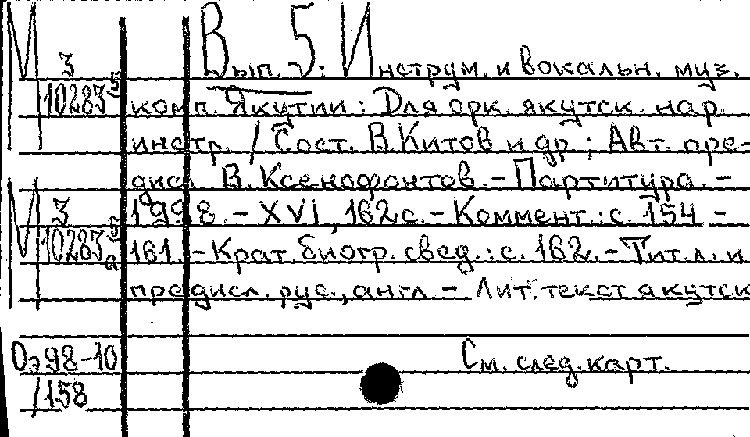 Вып. 5: Инструм. и вокальн. муз.
М 3
10283-5
комп. Якутии: Для орк. якутск. нар.
инстр. / Сост. В. Китов и др.; Авт. пре-
дисл. В. Ксенофонтов. - Партитура. -
М 3
1998. - XVI, 162 с. - Коммент.: с. 154 -
10283-5а
161. - Крат. биогр. свед.: с. 162. - Тит. л. и
предисл. рус., англ. - Лит. текст якутск
Оэ98-10
См. след. карт.
/158